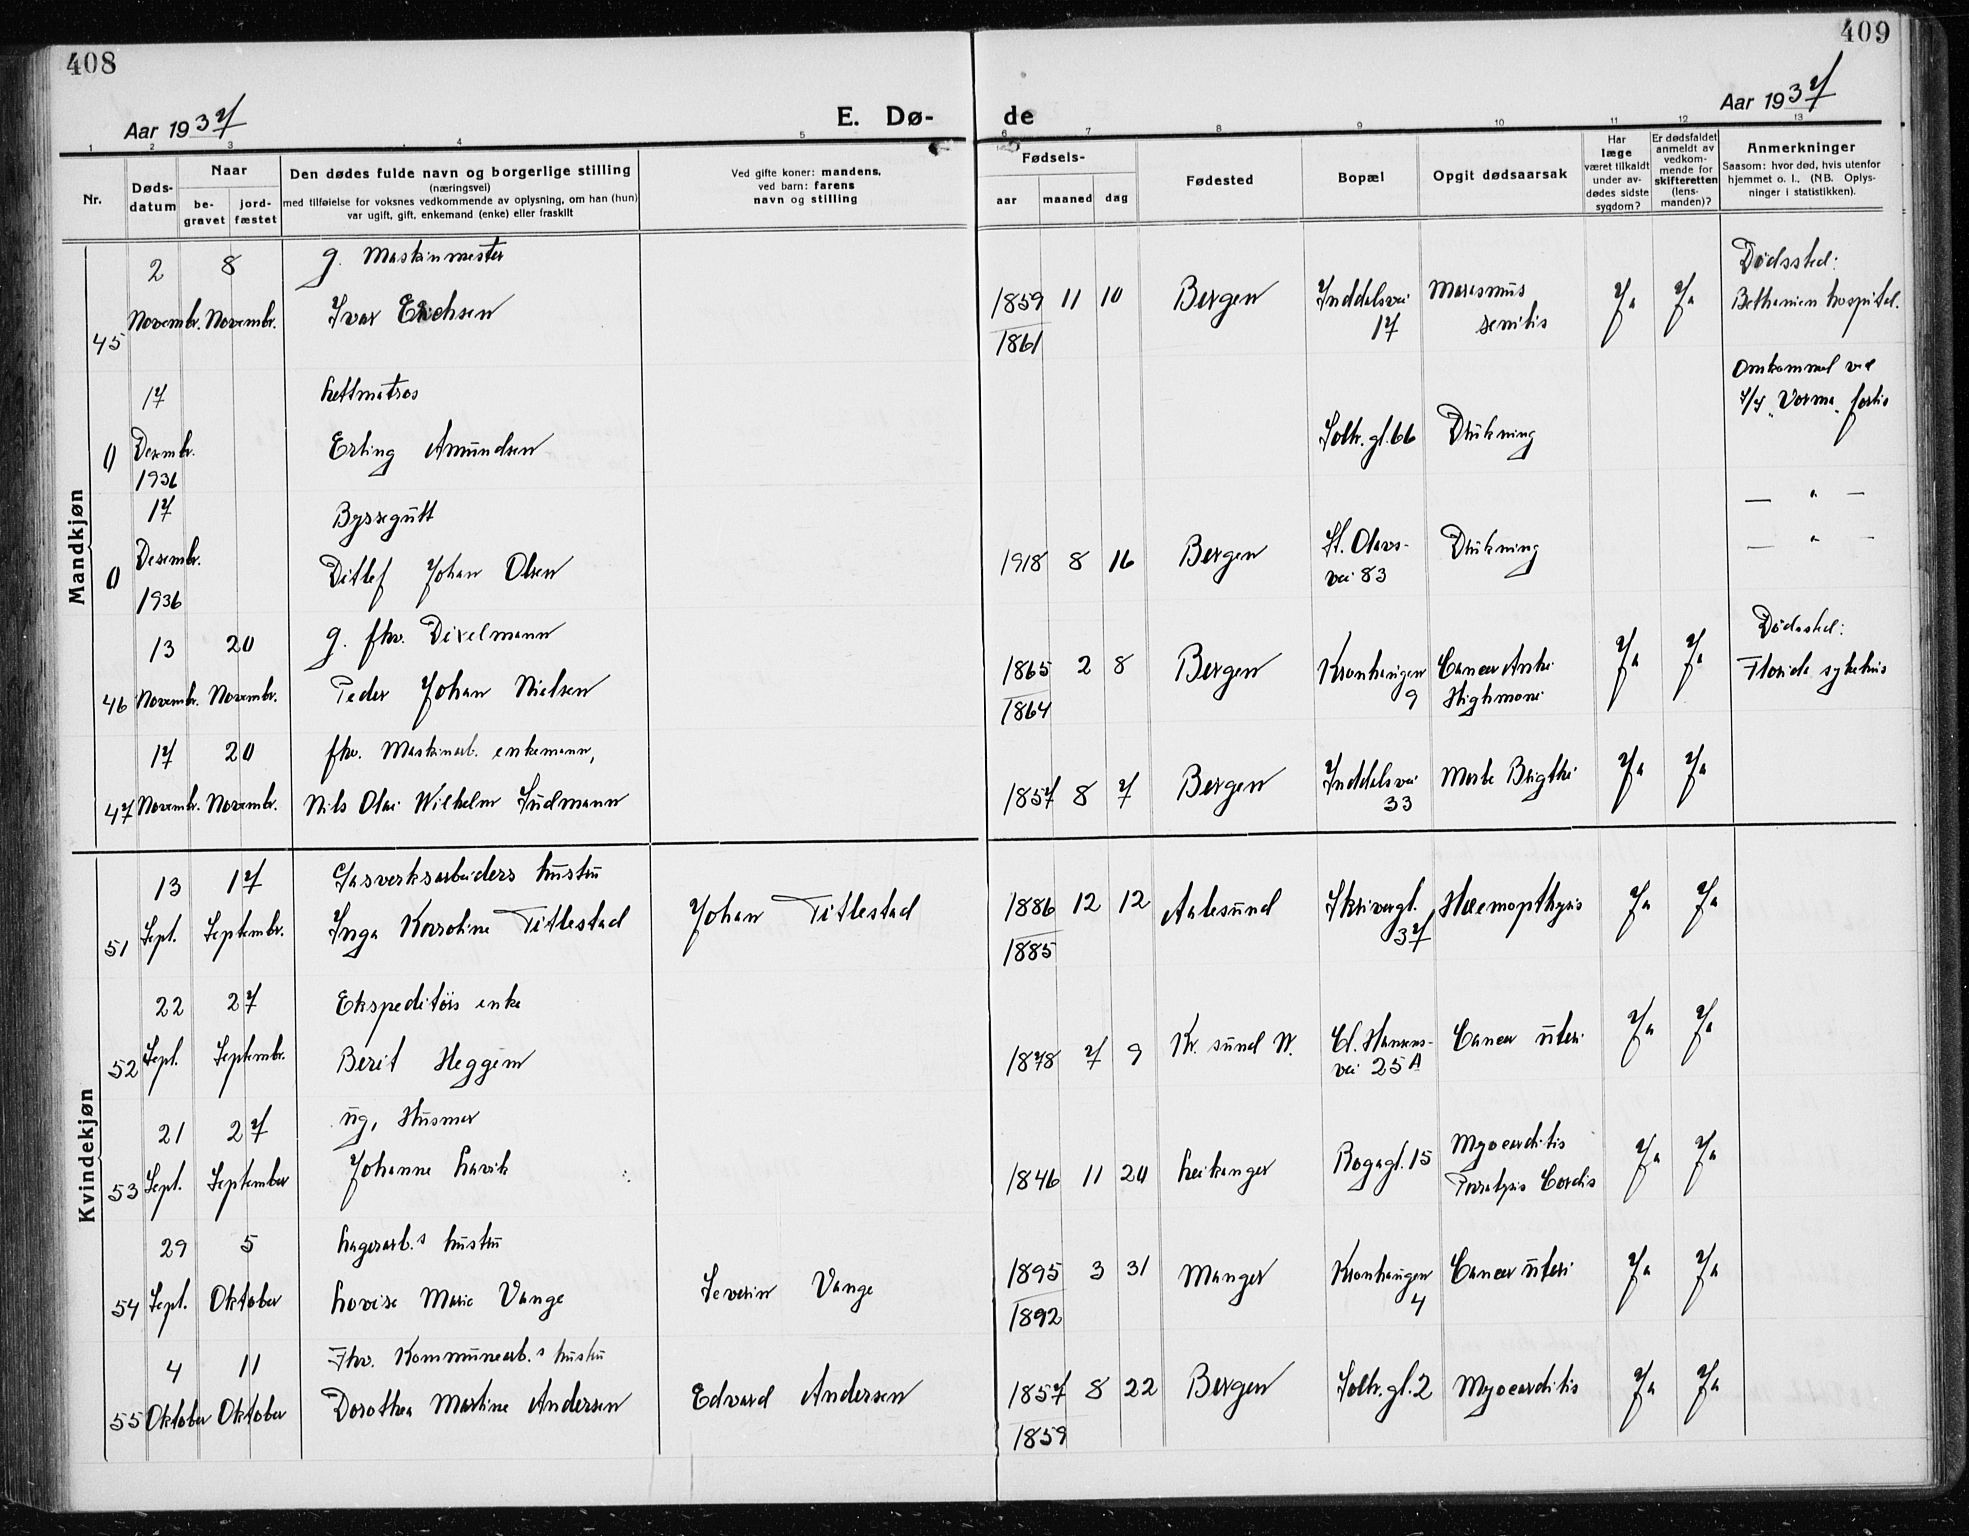 408
409
Aar 1937
E. Dø-
de
Aar 1937
1 2 3 4 5 6 7 8 9 10 11 12 13
Nr.
Døds-
datum
Naar
be-
gravet
jord-
fæstet
Den dødes fulde navn og borgerlige stilling
(næringsvei)
med tilføielse for voksnes vedkommende av oplysning, om han (hun)
var ugift, gift, enkemand (enke) eller fraskilt
Ved gifte koner: mandens,
ved barn: farens
navn og stilling
Fødsels-
aar maaned dag
Fødested
Bopæl
Opgit dødsaarsak
Har
læge
været tilkaldt
under av-
dødes sidste
sygdom?
Er dødsfaldet
anmeldt av
vedkom-
mende for
skifteretten
(lens-
manden)?
Anmerkninger
Saasom: hvor død, hvis utenfor
hjemmet o. l., (NB. Oplys-
ninger i statistikken).
Mandkjøn
2 8 g. Maskinmester Dødssted:
45 Novembr. Novembr. Ivar Erichsen 1859 11 10 Bergen Inddalsvei Marasmus Ja Ja Bethanien hospital.
1861 17 senilis
17 Lettmatros Omkommet ved
S/S "Vorma" forlis
0 Desembr. Erling Amundsen Solh. gl. 66 Drukning
1936
17 Byssegutt — " —
0 Desembr. Ditlef Johan Olsen 1918 8 16 Bergen St. Olavs- Drukning — " —
1936 vei 83
13 20 g. fhv. Dixelmann Dødssted:
46 Novembr. Novembr. Peder Johan Nielsen 1865 2 8 Bergen Kronhaugen Cancer Antri Ja Ja Florida sykehus
1864 9 Highmori
17 20 fhv. Maskinarb. enkemann,
47 Novembr. Novembr. Nils Olai Wilhelm Sudmann 1857 8 7 Bergen Inddalsvei Morb. Brigthi Ja Ja
33
Kvindekjøn
13 17 Gasverksarbeiders hustru
51 Sept. Septembr. Inga Karoline Titlestad Johan Titlestad 1886 12 12 Aalesund Skrivergt. Hæmopthysis Ja Ja
1885 37
22 27 Ekspeditørs enke
52 Sept. Septembr. Berit Heggem 1878 7 9 Kr. sund N. Cl. Hansens- Cancer uteri Ja Ja
vei 25 A
21 27 ug, Husmor
53 Sept. September Johanne Lavik 1846 11 20 Leikanger Rogagt. 15 Myocarditis Ja Ja
Paralysis Cordis
29 5 Lagerarb.s hustru
54 Sept. Oktober Lovise Marie Vange Severin Vange 1895 3 31 Manger Kronhaugen Cancer uteri Ja Ja
1892 4
4 11 Fhv. Kommunearb.s hustru
55 Oktober Oktober Dorothea Martine Andersen Edvard Andersen 1857 8 22 Bergen Solh. gl. 2 Myocarditis Ja Ja
1859